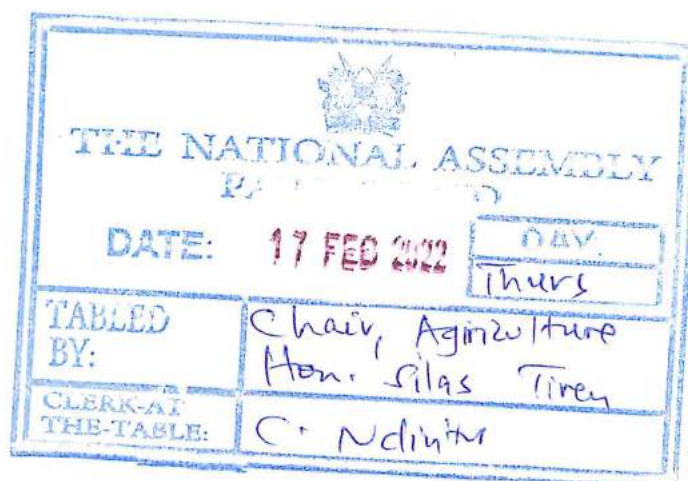 THE NATIONAL ASSEMBLY
DATE: 17 FEB 2022 DAY:
Thurs
TABLED BY:
Chair, Agriculture
Hon. Silas Tiren
CLERK-AT THE-TABLE:
C.